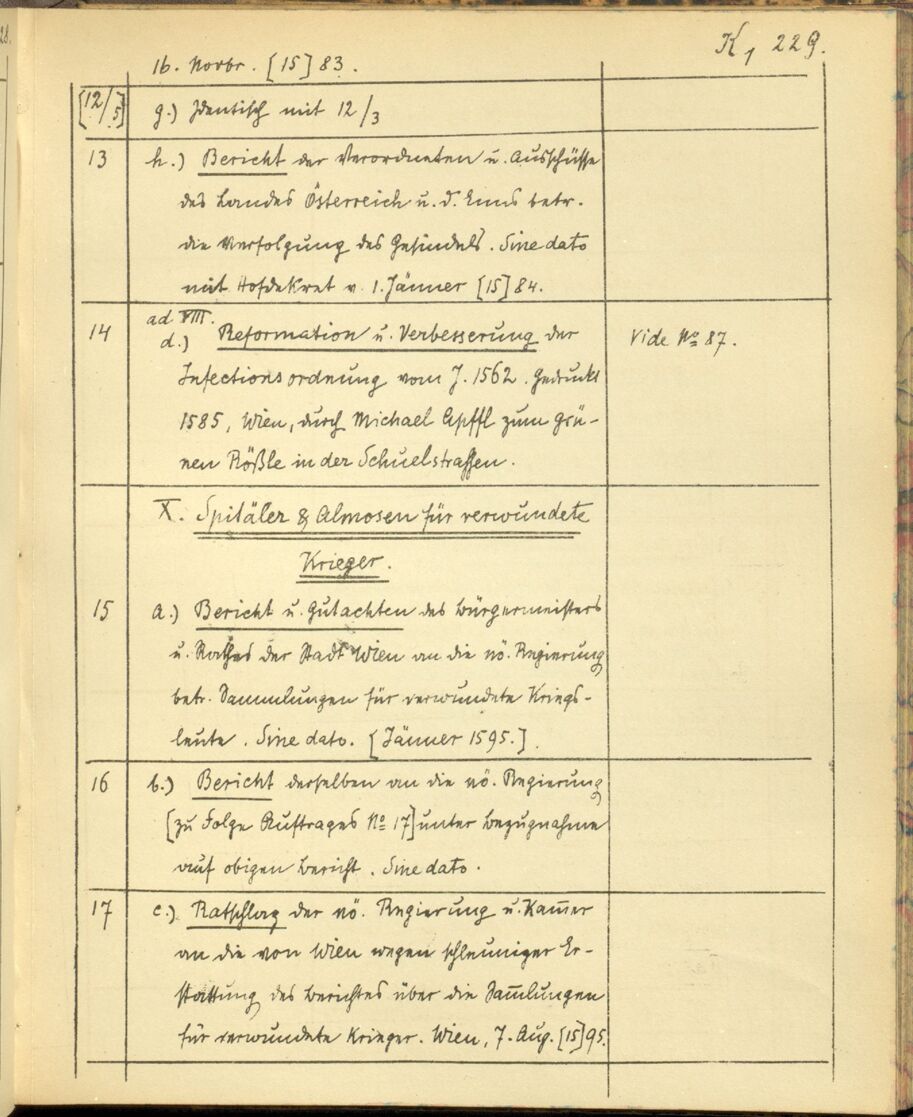 K1 229.
16. Novbr. [15]83.
[12/5] g.) Identisch mit 12/3
13 h.) Bericht der Verordneten u. Ausschüsse
des Landes Österreich u. d. Enns betr.
die Verfolgung des Gesindels. Sine dato
mit Hofdekret v. 1. Jänner [15]84.
ad VIII.
14 d.) Reformation u. Verbesserung der Vide No 87.
Infectionsordnung vom J. 1562. Gedruckt
1585, Wien, durch Michael Apffl zum grü-
nen Rößle in der Schuelstrassen.
X. Spitäler & Almosen für verwundete
Krieger.
15 a.) Bericht u. Gutachten des Bürgermeisters
u. Rathes der Stadt Wien an die nö. Regierung
betr. Sammlungen für verwundete Kriegs-
leute. Sine dato. [Jänner 1595.]
16 b.) Bericht derselben an die nö. Regierung
[zu Folge Auftrages No 17] unter Bezugnahme
auf obigen Bericht. Sine dato.
17 c.) Ratschlag der nö. Regierung u. Kam̄er
an die von Wien wegen schleuniger Er-
stattung des Berichtes über die Sam̄lungen
für verwundete Krieger. Wien, 7. Aug. [15]95.